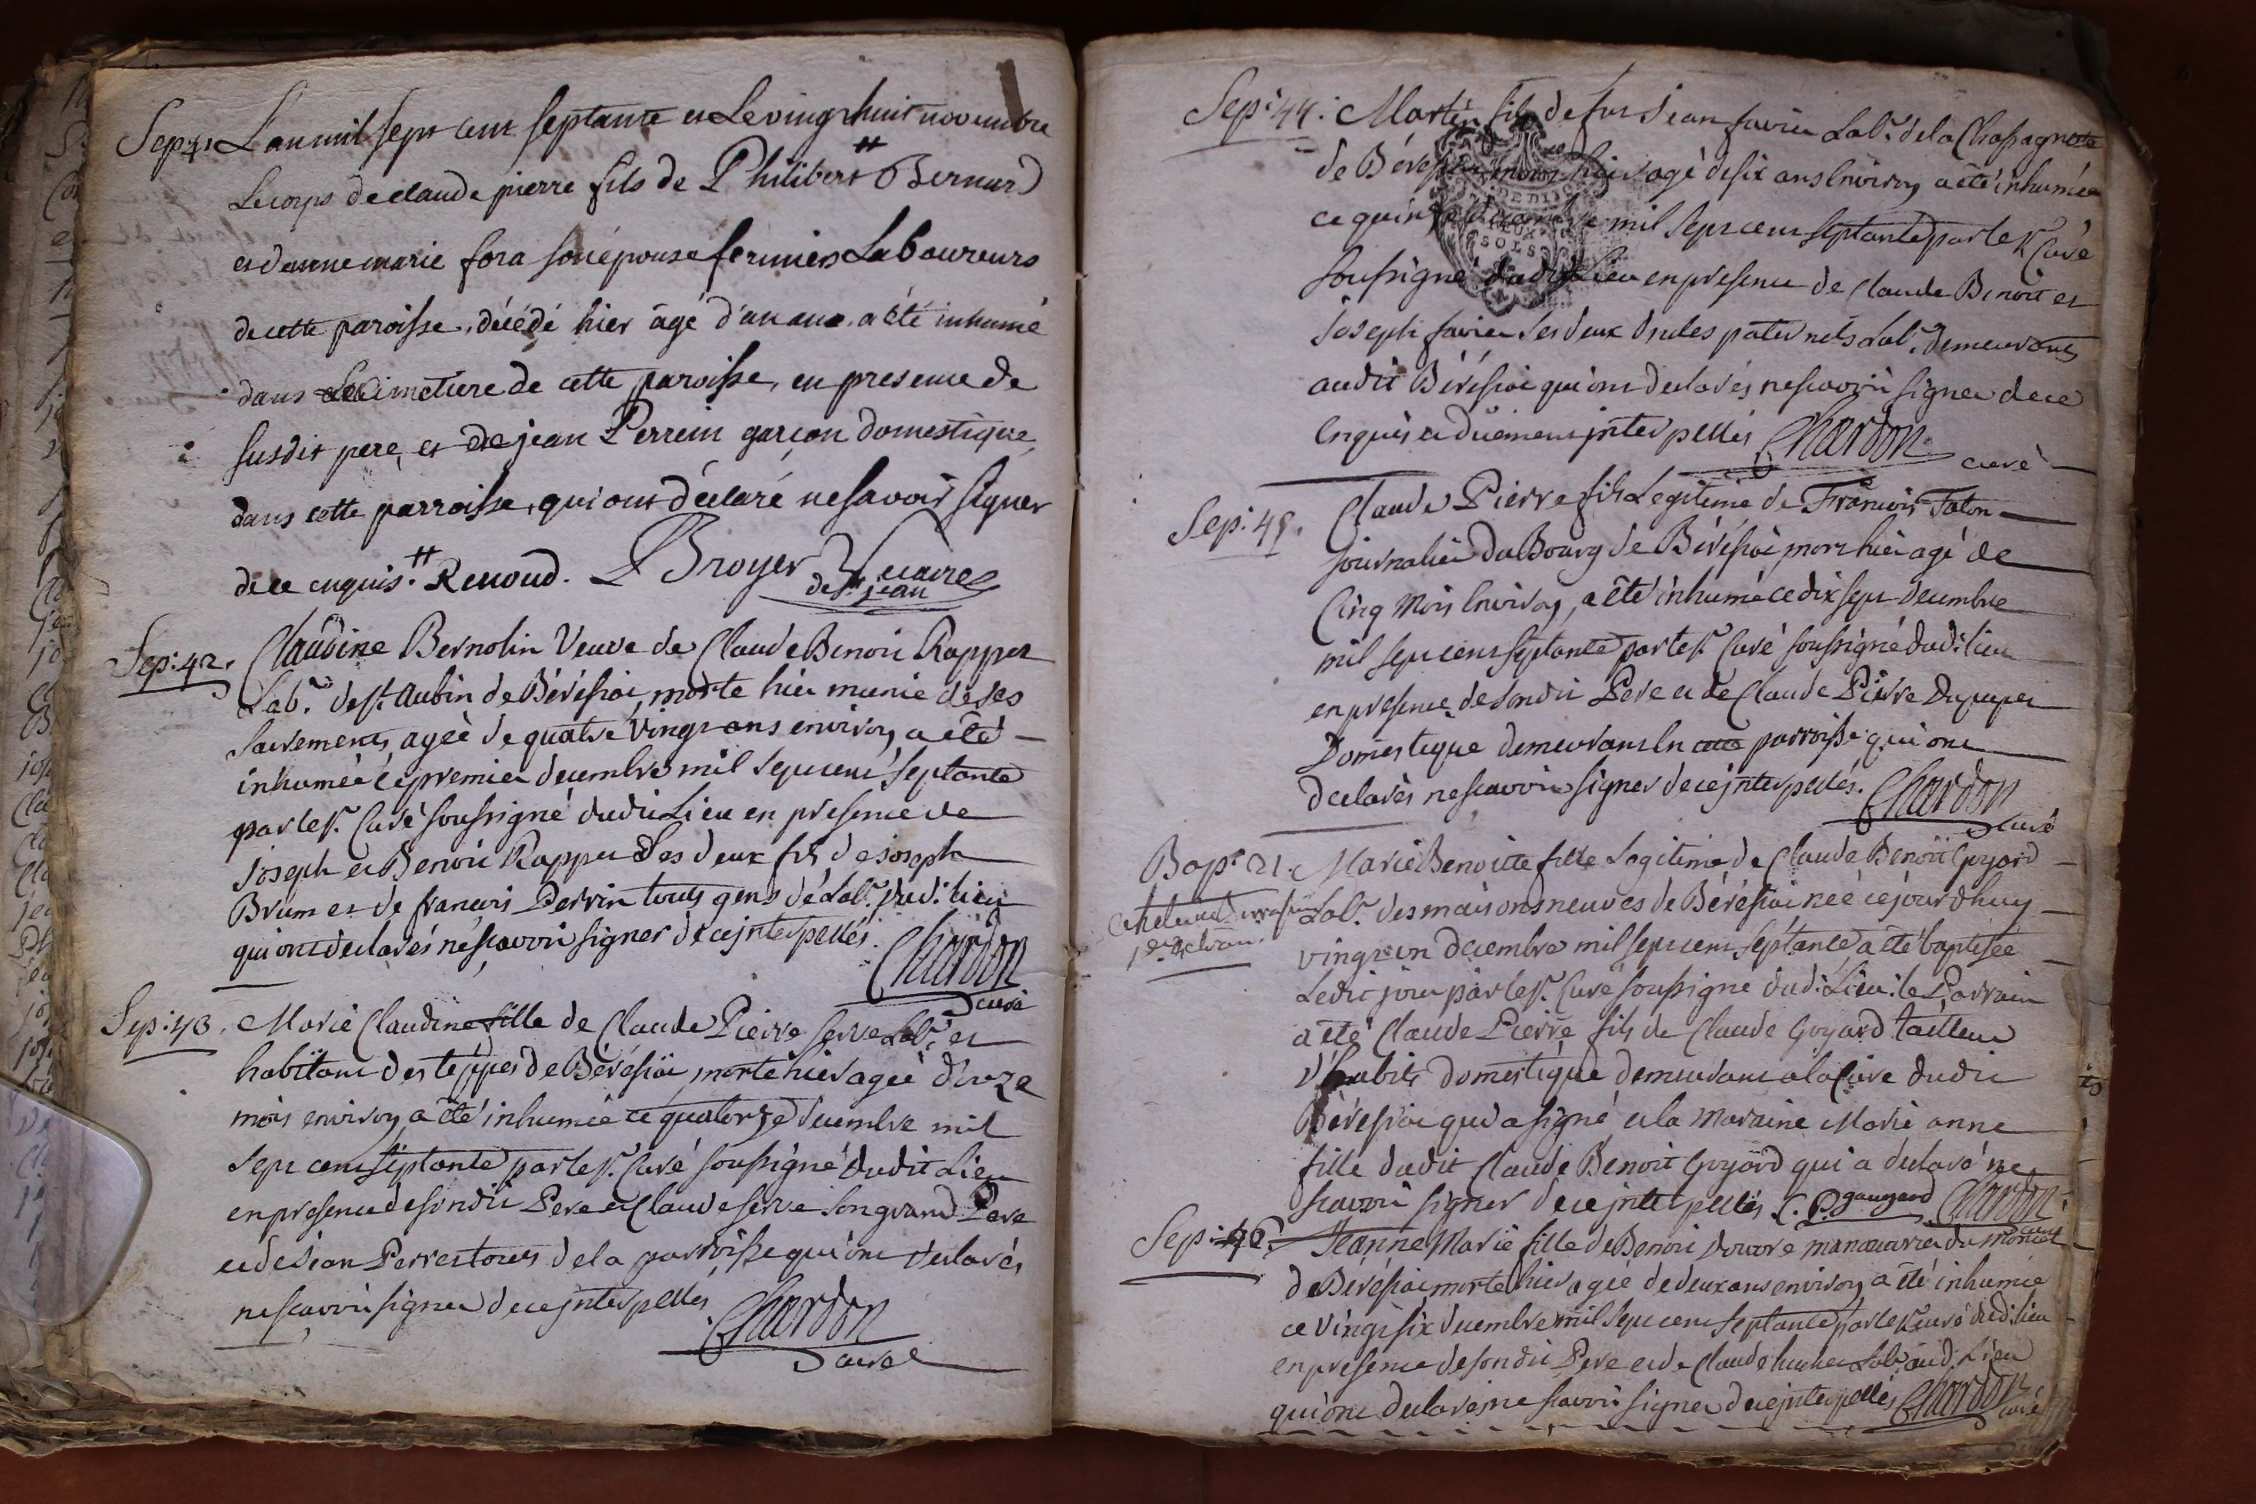 Sep: 41 L'an mil sept cent septante et le vingt huit novembre
Le corps de claude pierre fils de Philibert # Bernard
et d'anne marie fora son épouse fermiers Laboureurs
de cette paroisse, décédé hier âgé d'un an, a été inhumé
dans le cimetiere de cette paroisse, en presence de
susdit pere, et de jean Perrein garçon domestique
dans cette parroisse, qui ont déclaré ne savoir signer
de ce enquis. # Renoud. Broyer Vicaire
de St jean
Sep: 42. Claudine Bernolin Veuve de Claude Benoit Rappet
Labr. de St. Aubin de Béréssiat, morte hier munie de ses
sacrements, ageè de quatre vingt ans environ, a été
inhumée ce premier decembre mil sept cent septante
par le Sr. Curé soussigné dudit Lieu en presence de
Joseph et Benoit Rappet Ses deux fils de Joseph
Brun et de francois Perrin touts gens de Labr. dud: lieu
qui ont declarés ne scavoir signer de ce jnterpellés. Chardon
curé
Sep: 43. Marie Claudine fille de Claude Pierre Serve Labr. et
habitant des teppes de Béréssiat, morte hier ageè d'onze
mois environ, a été inhumée ce quatorze decembre mil
sept cent septante par le Sr. Curé soussigné dudit Lieu
en presence de sondit Pere et Claude Serve son grand Pere
et de Jean Perret tous de la parroisse qui ont declarés
ne scavoir signer de ce jnterpellés. Chardon
curé
Sep: 44. Martin fils de fut Jean favier Labr. de la Chassagnote
de Béréssiat mort hier agé de six ans environ a été inhumé
ce quinze decembre mil sept cent septante par le Sr Curé
soussigné dudit Lieu en presence de Claude Benoit et
Joseph favier ses deux oncles paternels Labr. demeurants
audit Béréssiat qui ont declarés ne scavoir signer de ce
enquis et duement jnterpellés Chardon
curé
Sep: 45. Claude Pierre fils Legitime de Francois Talon
journalier du Bourg de Béréssiat mort hier agé de
Cinq Mois environ, a été inhumé ce dix sept decembre
mil sept cent septante par le Sr. Curé soussigné dud: lieu
en presence de sondit Pere et de Claude Pierre Dupuper
Domestique demeurant en cette parroisse qui ont
declarés ne scavoir signer de ce jnterpellés. Chardon
curé
Bapt: 21. Marie Benoitte fille Legitime de Claude Benoit Goyard
Labr. des maisons neuves de Béréssiat neé ce jourdhuy
vingt un decembre mil sept cent septante, a été baptisée
Ledit jour par le Sr. Curé soussigné dud: Lieu: le Parrain
a été Claude Pierre fils de Claude Goyard tailleur
d'habits domestique demeurant a la Cure dudit
Béréssiat qui a signé et la Maraine Marie anne
fille dudit Claude Benoit Goyard qui a declaré ne
scavoir signer de ce jnterpellés C. P. gauyard Chardon
Sep: 46. Jeanne Marie fille de Benoit manoeuvrier du
de Béréssiat morte hier agée de deux ans environ, a été inhumée
ce vingt six decembre mil sept cent septante par le Sr curé dud: lieu
en presence de sondit Pere et de Claude Labr. aud: Lieu
qui ont declarés ne scavoir signer de ce jnterpellés Chardon
curé